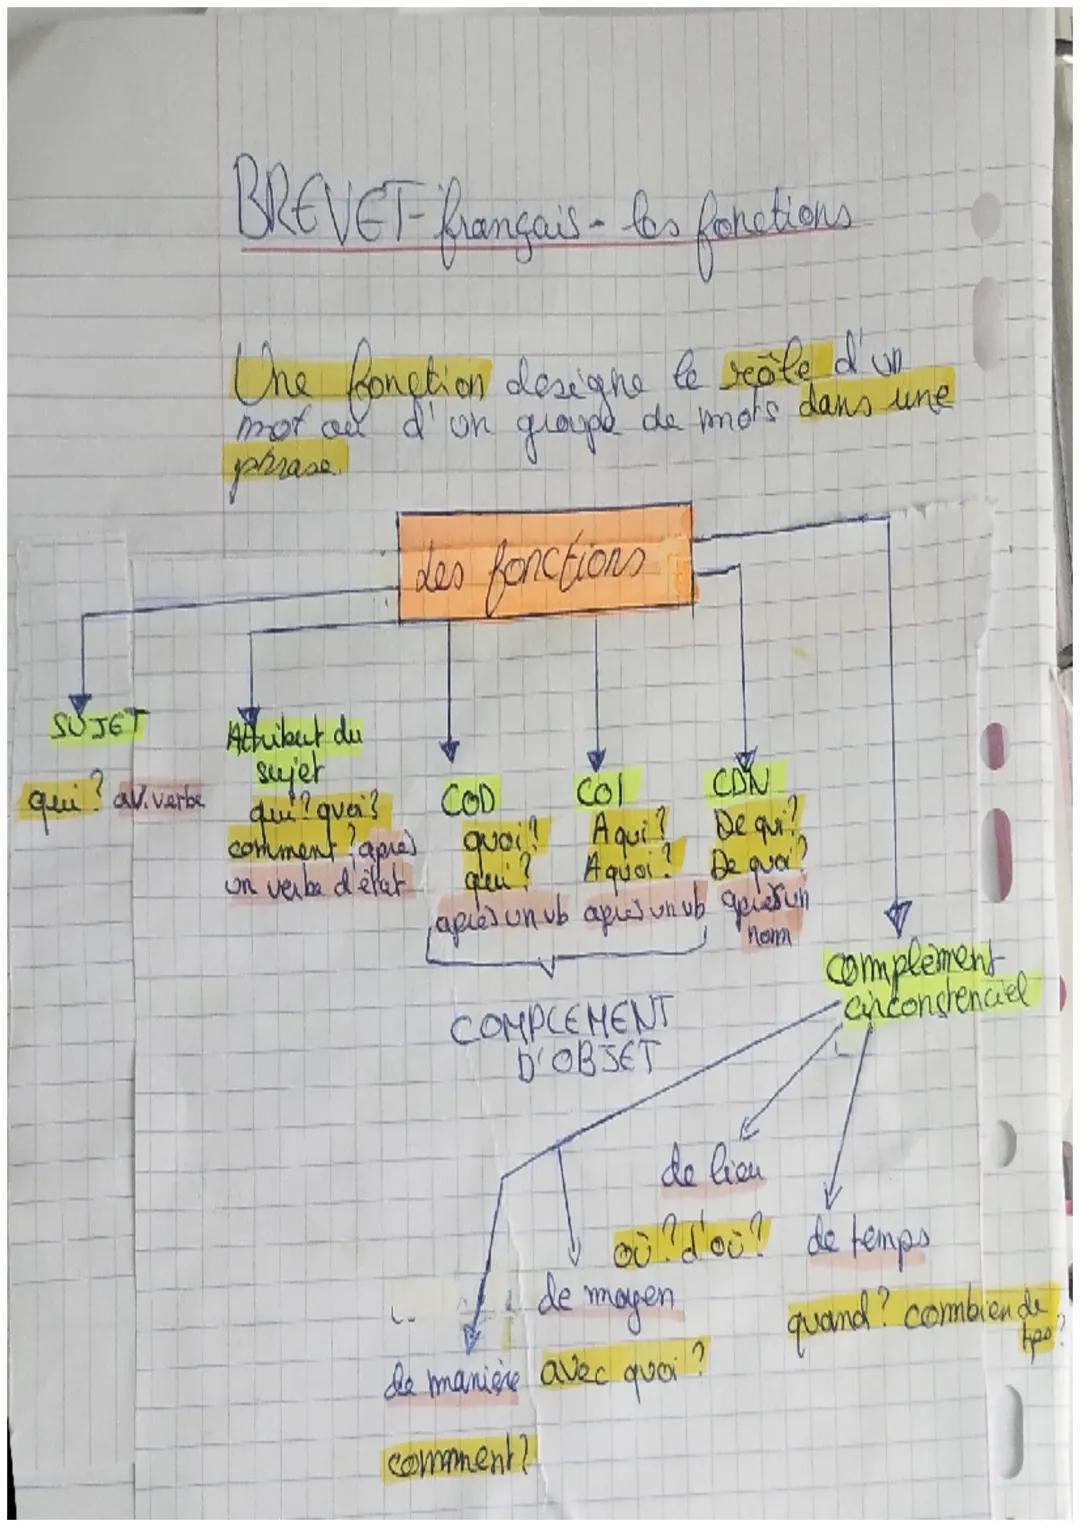 BREVET-français-les fonctions
Une fonction designe le rôle d'un
mot ou d'un groupe de mots dans une
phrase.
les fonctions
SUJET
qui? av.verbe
Attribut du
sujet
qui? quoi?
comment? après
un verbe d'état
COD
quoi?
qui?
après un vb
COI
A qui?
A quoi?
après un vb
CDN
De qui?
De quoi?
après un
nom
COMPLEMENT
D'OBJET
complement
circonstenciel
de lieu
où? d'où?
de temps
quand? combien de
tps?
de moyen
avec quoi?
de manière
comment?